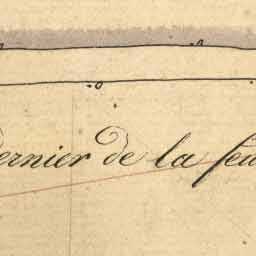 ernier de la feu